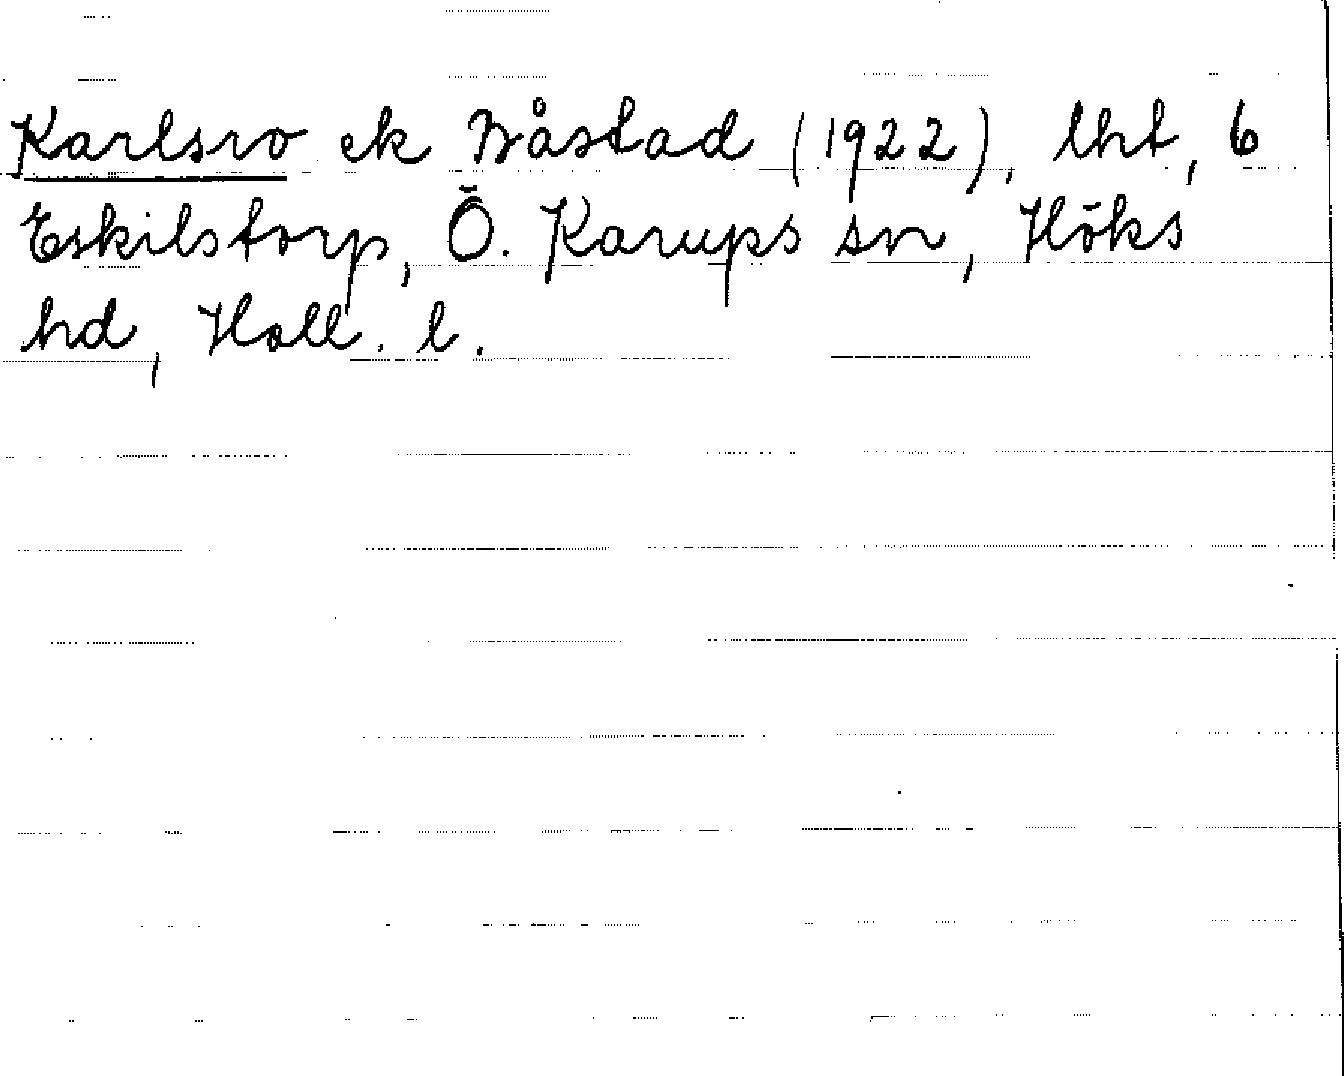 Karlsro ek Båstad (1922), lht, 6
Eskilstorp, Ö. Karups sn, Höks
hd, Hall. l.